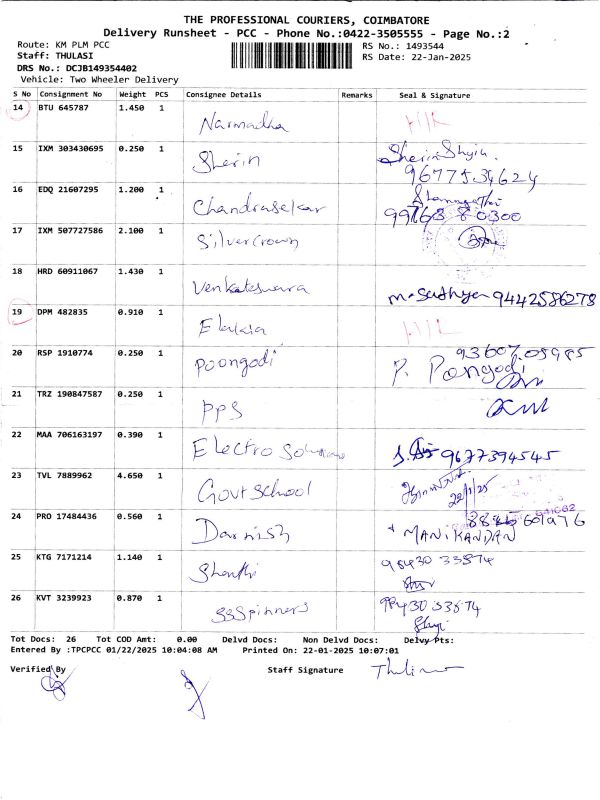 THE PROFESSIONAL COURIERS, COIMBATORE
Delivery Runsheet - PCC - Phone No.:0422-3505555 - Page No.:2
Route: KM PLM PCC
RS No.: 1493544
Staff: THULASI
RS Date: 22-Jan-2025
DRS No.: DCJB149354402
Vehicle: Two Wheeler Delivery
S No Consignment No Weight PCS Consignee Details Remarks Seal & Signature
14 BTU 645787 1.450 1 Narmadha
15 IXM 303430695 0.250 1 Sherin Sherin
9677534624
16 EDQ 21607295 1.200 1 Chandrasekar
99763 80300
17 IXM 507727586 2.100 1 Silver Crown
18 HRD 60911067 1.430 1 Venkateswara m. Sathya 9442586278
19 DPM 482835 0.910 1
20 RSP 1910774 0.250 1 Poongodi 93607 05985
P. Pongodi
21 TRZ 190847587 0.250 1 PPS
22 MAA 706163197 0.390 1 Electro Solutions 9677394545
23 TVL 7889962 4.650 1 Govt School
22/1/25
24 PRO 17484436 0.560 1 Darnish
MANIKANDAN
25 KTG 7171214 1.140 1 Shanthi 98430 33874
26 KVT 3239923 0.870 1 SSSpinners 98430 33874
Tot Docs: 26 Tot COD Amt: 0.00 Delvd Docs: Non Delvd Docs: Delvy Pts:
Entered By :TPCPCC 01/22/2025 10:04:08 AM Printed On: 22-01-2025 10:07:01
Verified By Staff Signature